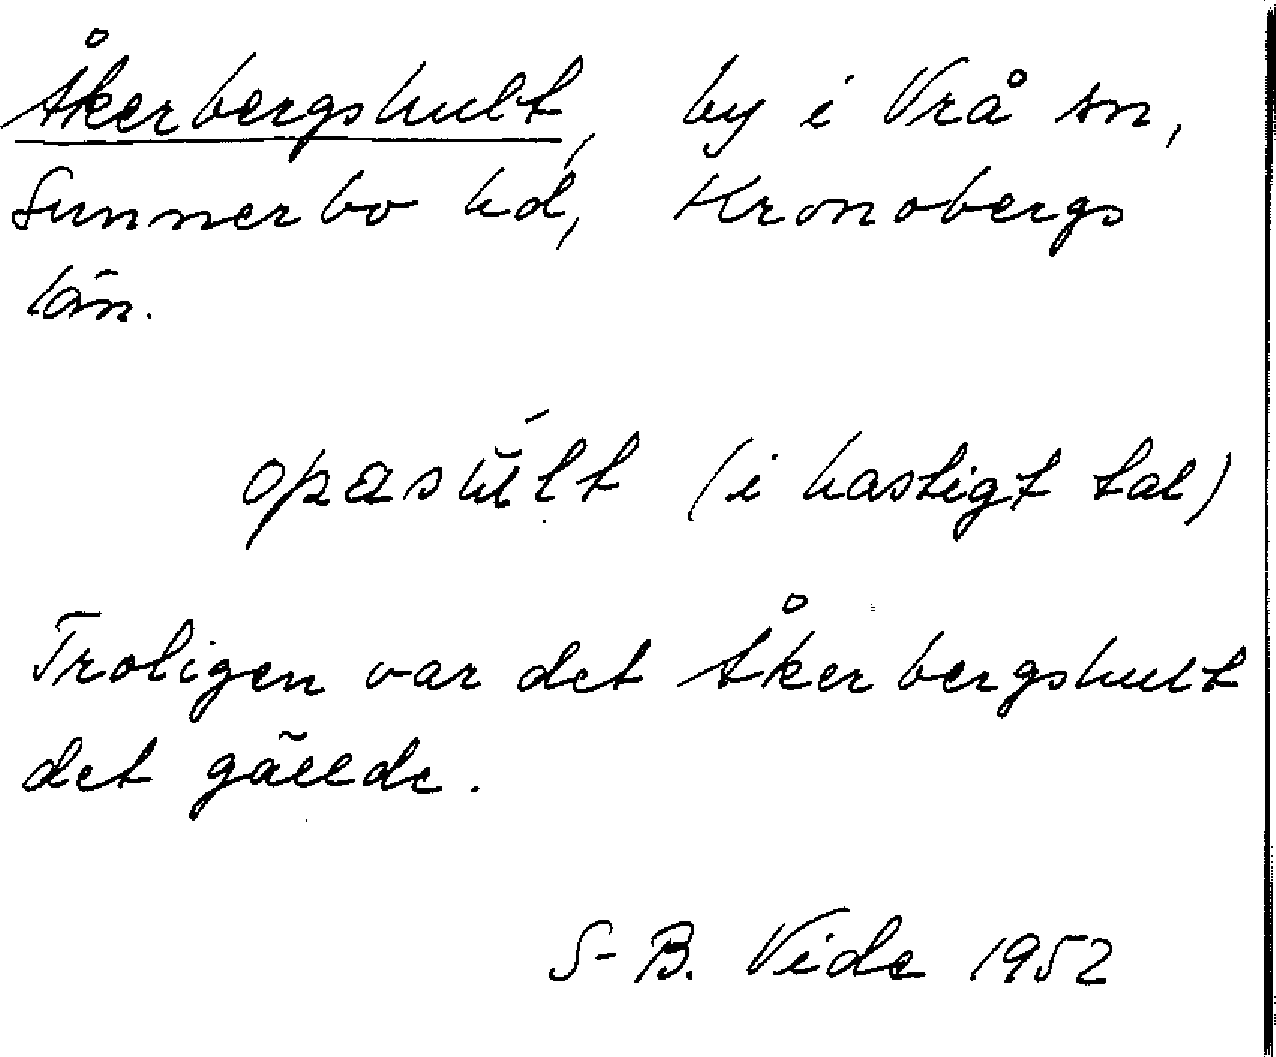 Åkerbergshult, by i Vrå sn,
Sunnerbo hd, Kronobergs
län.
opasŭ́lt (i hastigt tal)
Troligen var det Åkerbergshult
det gällde.
S-B. Vide 1952